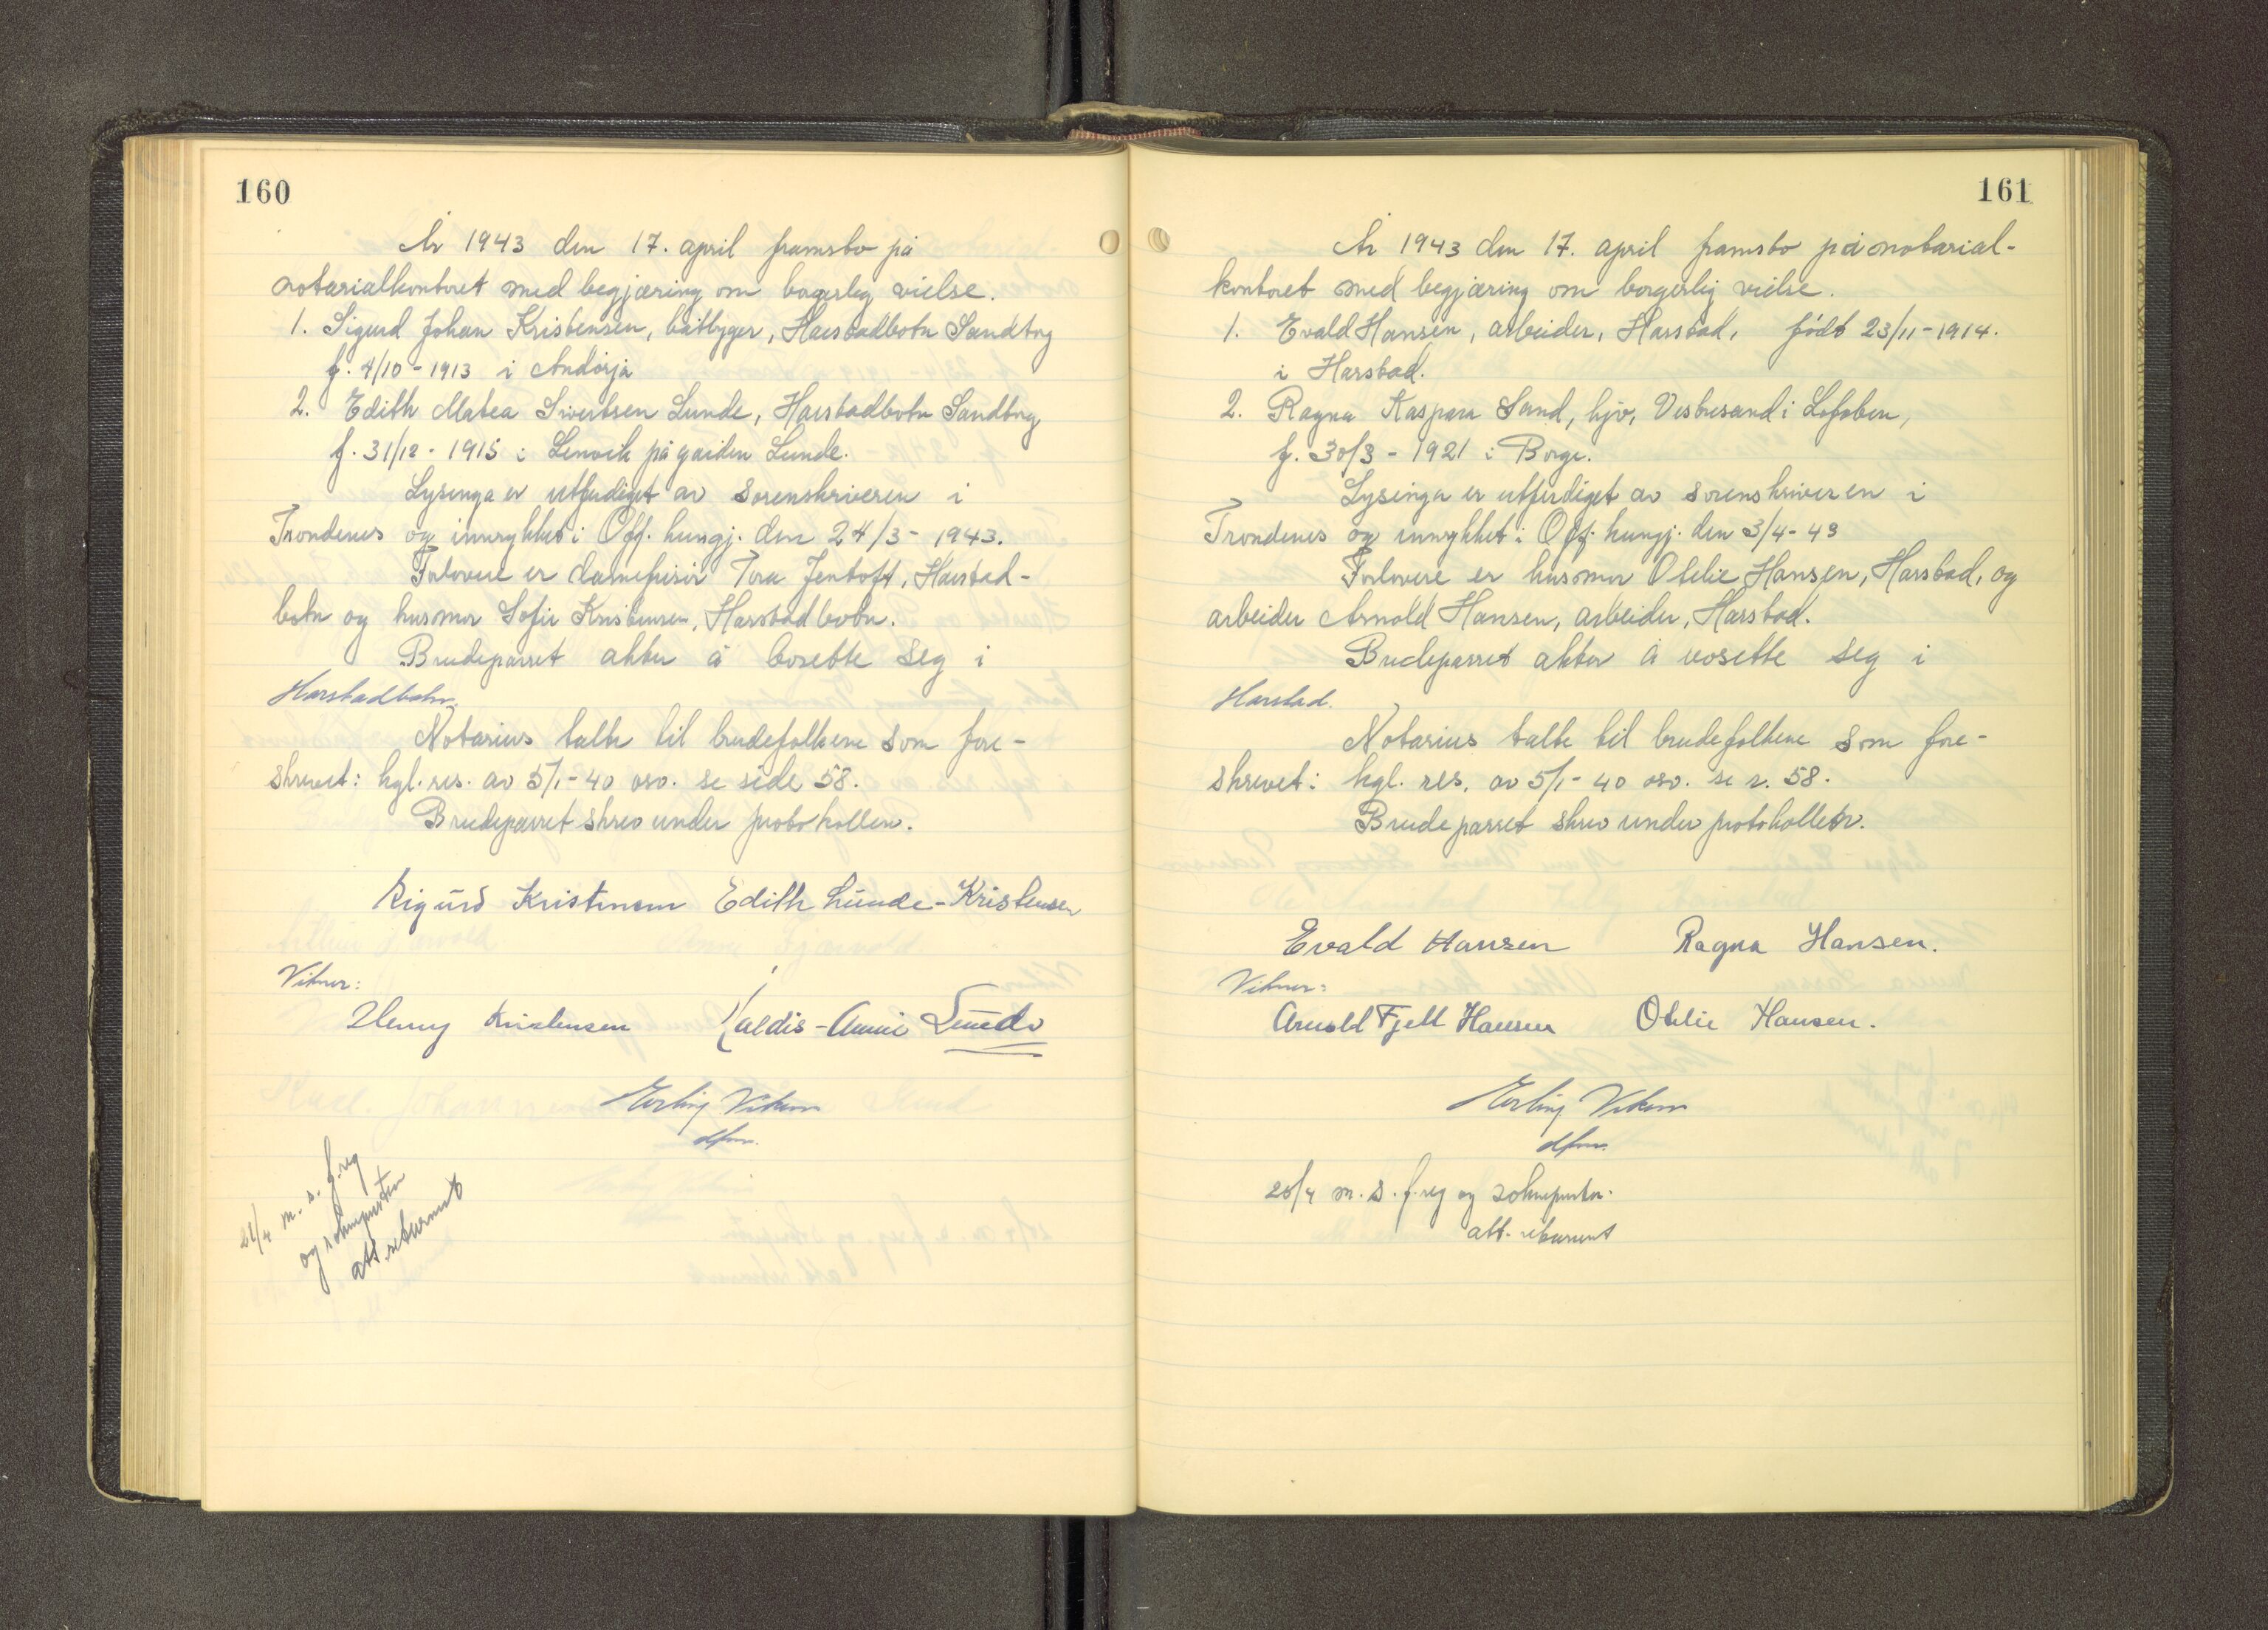 160
År 1943 den 17. april framsto på
notarialkontoret med begjæring om borgerlig vielse.
1. Sigurd Johan Kristensen, båtbygger, Harstadbotn Sandtorg
f. 4/10 - 1913 i Andørja
2. Edith Matea Sivertsen Lunde, Harstadbotn Sandtorg
f. 31/12 - 1915 i Lenvik på garden Lunde.
Lysinga er utferdiget av sorenskriveren i
Trondenes og innrykket i Off. kungj. den 24/3 - 1943.
Forlovere er damefrisør Tora Jentoft, Harstad-
botn og husmor Sofie Kristensen, Harstadbotn.
Brudeparret akter å bosette seg i
Harstadbotn.
Notarius talte til brudefolkene som fore-
skrevet: kgl. res. av 5/1 - 40 osv. se side 58.
Brudeparret skrev under protokollen.
Sigurd Kristensen Edith Lunde-Kristensen
Vitner:
Henny Kristensen Valdis-Annie Lunde
Erling Viken
dfm.
21/4 m. s. f.reg
og sokneprsten
att. returnert
161
År 1943 den 17. april framsto på notarial-
kontoret med begjæring om borgerlig vielse.
1. Evald Hansen, arbeider, Harstad, født 23/11 - 1914.
i Harstad.
2. Ragna Kaspara Sand, hjv, Vestresand i Lofoten,
f. 30/3 - 1921 i Borge.
Lysinga er utferdiget av sorenskriveren i
Trondenes og innrykket i Off. kungj. den 3/4 - 43
Forlovere er husmor Otelie Hansen, Harstad, og
arbeider Arnold Hansen, arbeider, Harstad.
Brudeparret akter å vosette seg i
Harstad.
Notarius talte til brudefolkene som fore-
skrevet: kgl. res. av 5/1 - 40 osv. se s. 58.
Brudeparret skrev under protokollen.
Evald Hansen Ragna Hansen.
Vitner:
Arnold Fjell Hansen Otelie Hansen.
Erling Viken
dfm.
20/4 m. s. f.reg og sokneprsten.
att. returnert